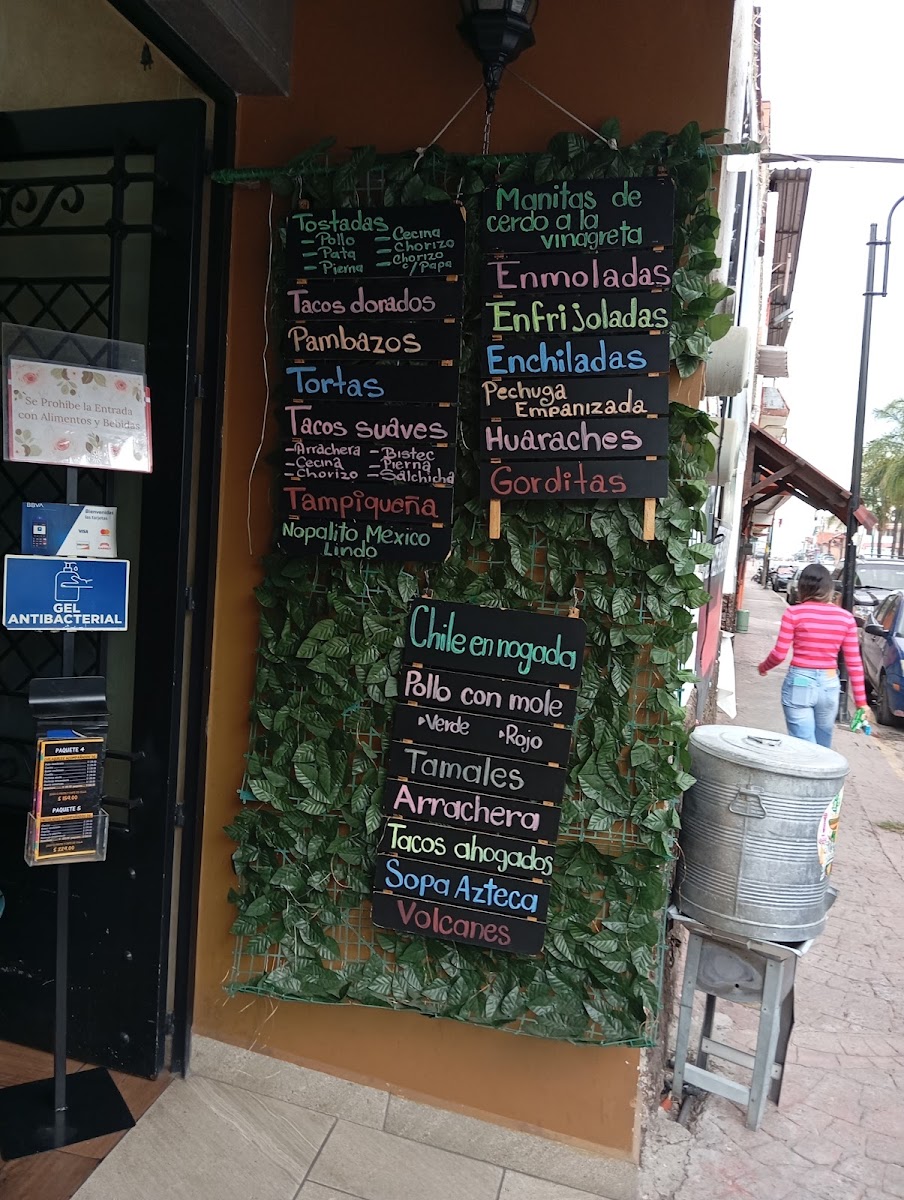 Tostadas
- Pollo
- Pata
- Pierna
- Cecina
- Chorizo
- Chorizo
c/Papa
Tacos dorados
Pambazos
Tortas
Tacos suaves
- Arrachera
- Cecina
- Chorizo
- Bistec
- Pierna
- Salchicha
Tampiqueña
Nopalito Mexico
Lindo
Manitas de
cerdo a la
vinagreta
Enmoladas
Enfrijoladas
Enchiladas
Pechuga
Empanizada
Huaraches
Gorditas
Chile en nogada
Pollo con mole
▸Verde
▸Rojo
Tamales
Arrachera
Tacos ahogados
Sopa Azteca
Volcanes
Se Prohibe la Entrada
con Alimentos y Bebidas
BBVA
Bienvenidos
VISA
GEL
ANTIBACTERIAL
PAQUETE 4
PAQUETE 5